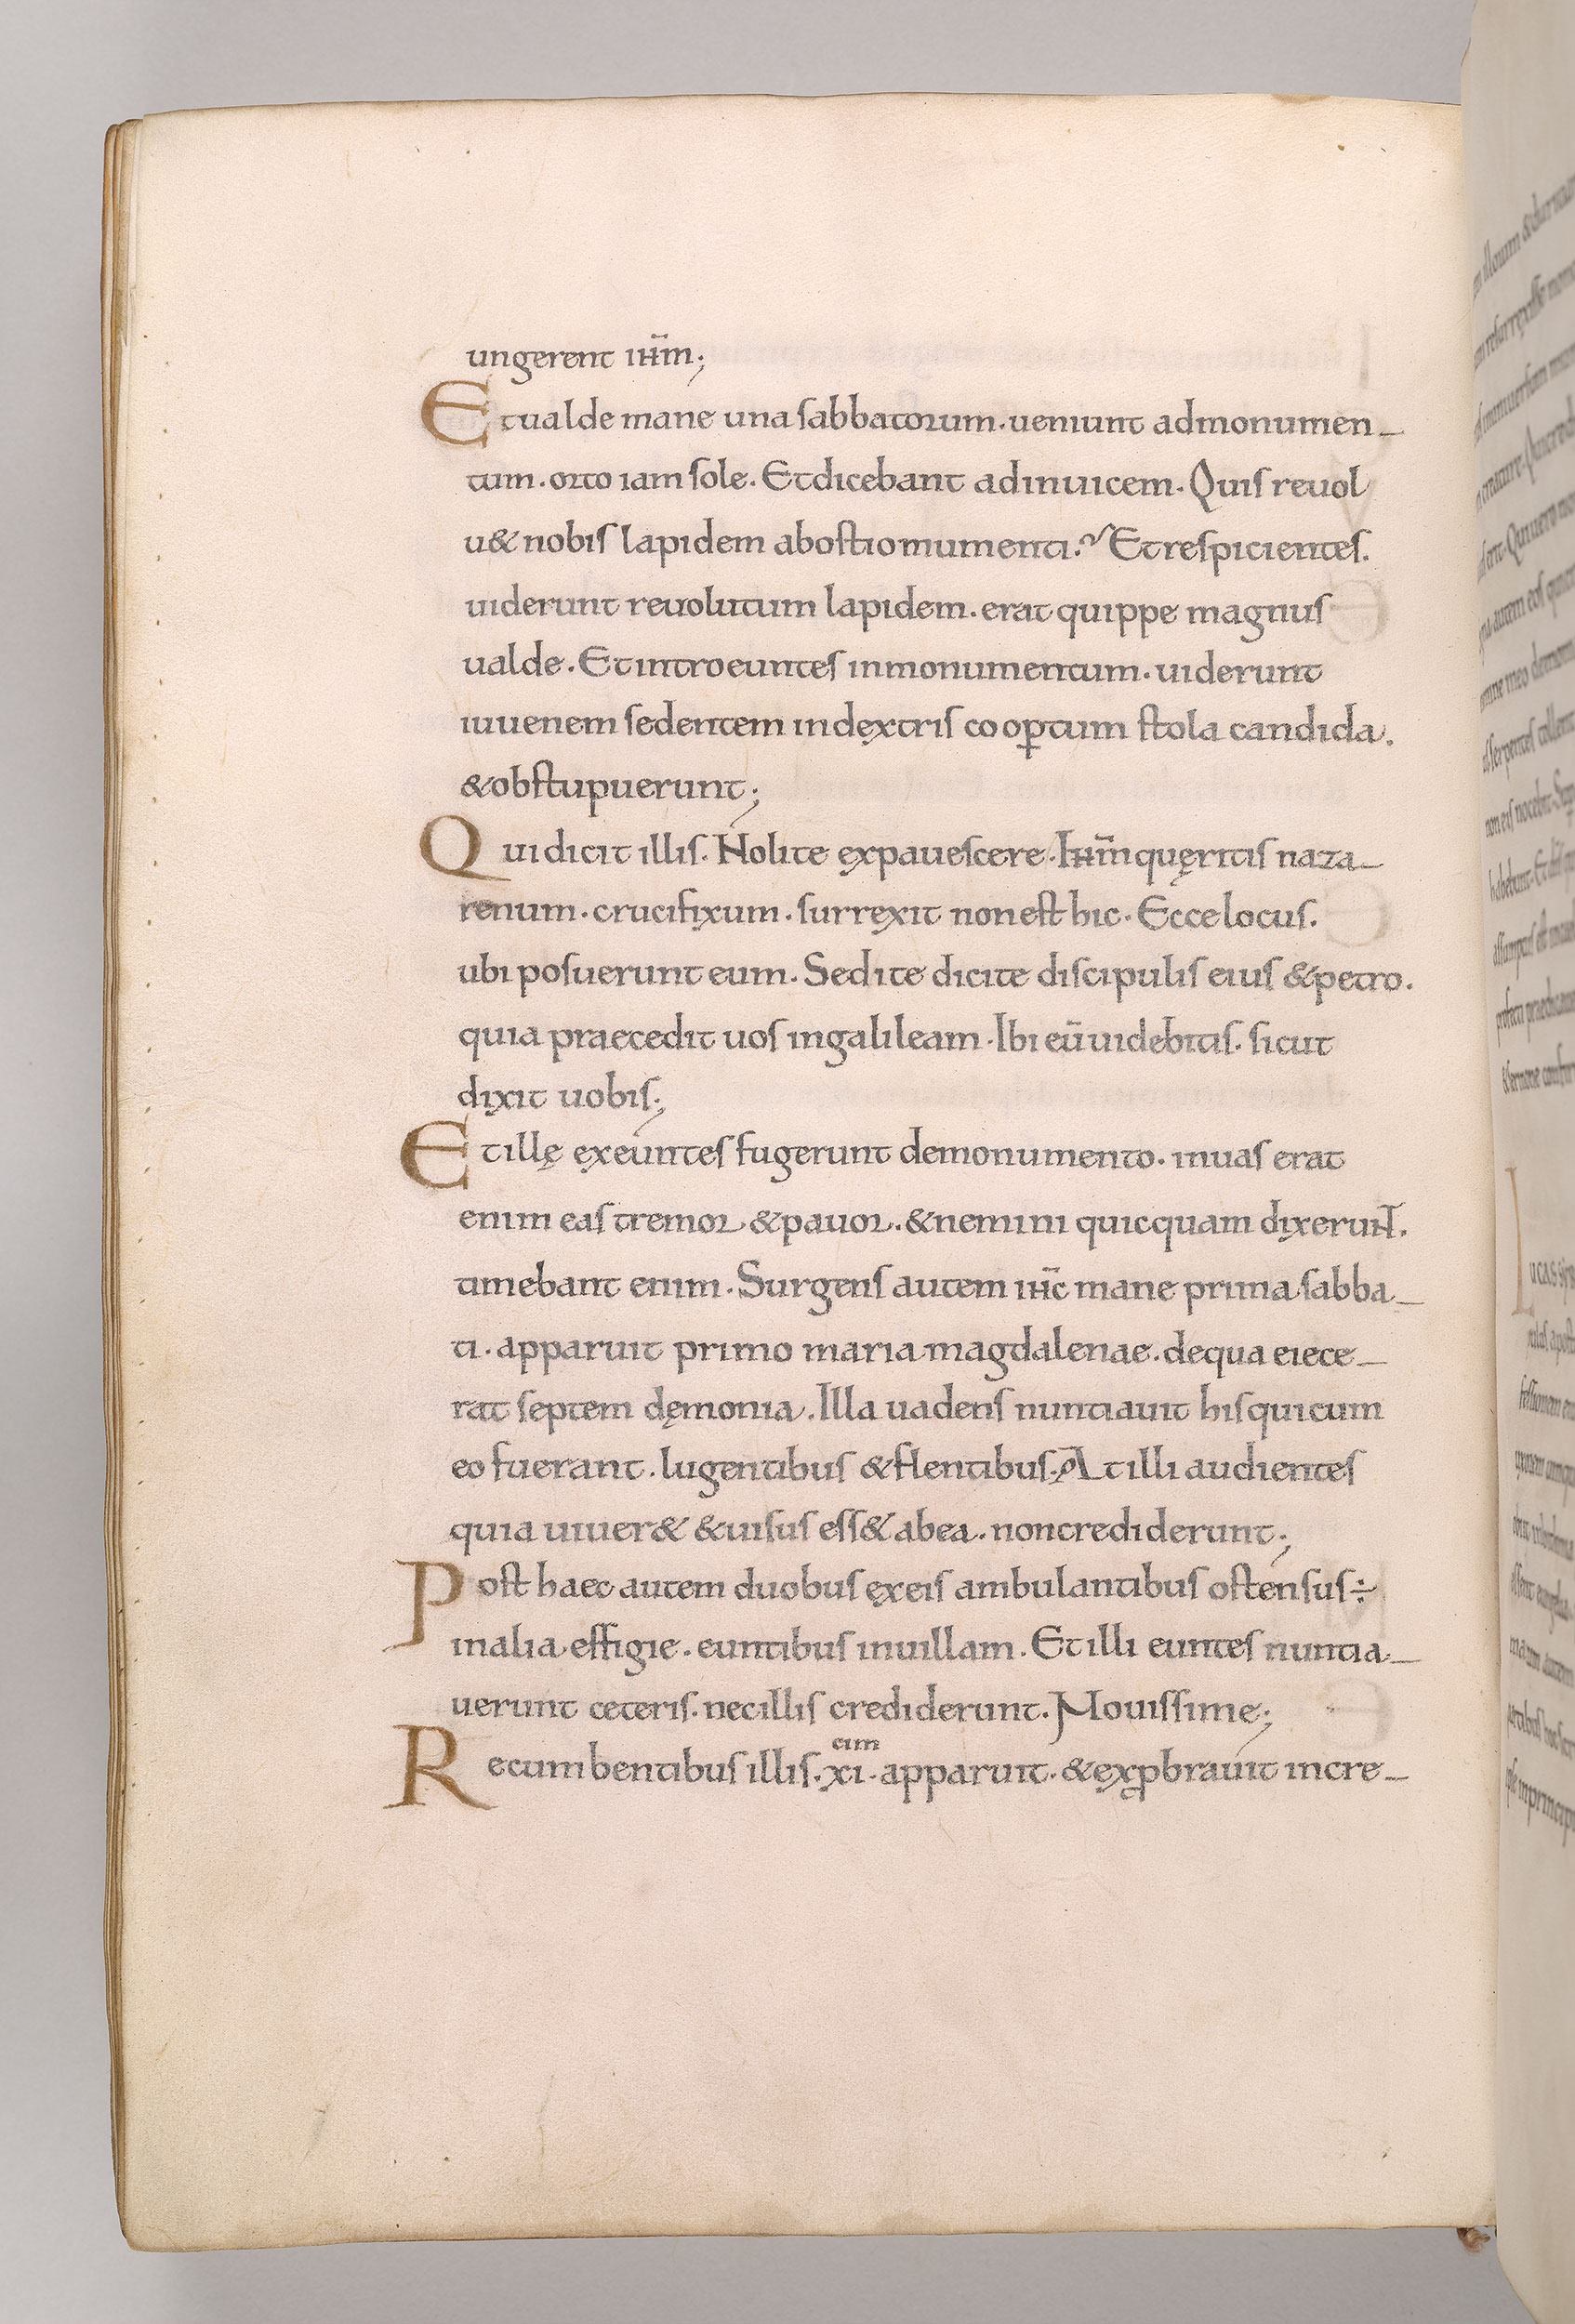 ungerent ihm̄;
Et ualde mane una sabbatorum. ueniunt ad monumen_
tum. orto iam sole. Et dicebant adinuicem. Quis reuol
u& nobis lapidem ab ostio mumenti? Et respicientes.
uiderunt reuolutum lapidem. erat quippe magnus
ualde. Et introeuntes in monumentum. uiderunt
iuuenem sedentem in dextris coop̱tum stola candida.
& obstupuerunt;
Qui dicit illis. Nolite expauescere. Ihm̄ quęritis naza_
renum. crucifixum. surrexit non est hic. Ecce locus.
ubi posuerunt eum. Sed ite dicite discipulis eius & petro.
quia praecedit uos in galileam. Ibi eū uidebitis. sicut
dixit uobis;
Et illę exeuntes fugerunt de monumento. inuas erat
enim eas tremor & pauor. & nemini quicquam dixerunt.
timebant enim. Surgens autem ihc̄ mane prima sabba_
ti. apparuit primo maria magdalenae. de qua eiece_
rat septem dęmonia. Illa uadens nuntiauit his qui cum
eo fuerant. lugentibus & flentibus. At illi audientes
quia uiuer& & uisus ess& ab ea. non crediderunt;
Post haec autem duobus ex eis ambulantibus ostensus ÷
in alia effigie. euntibus in uillam. Et illi euntes nuntia_
uerunt ceteris. nec illis crediderunt. Nouissime;
Recumbentibus illis. xi. apparuit. & exp̱brauit incre_